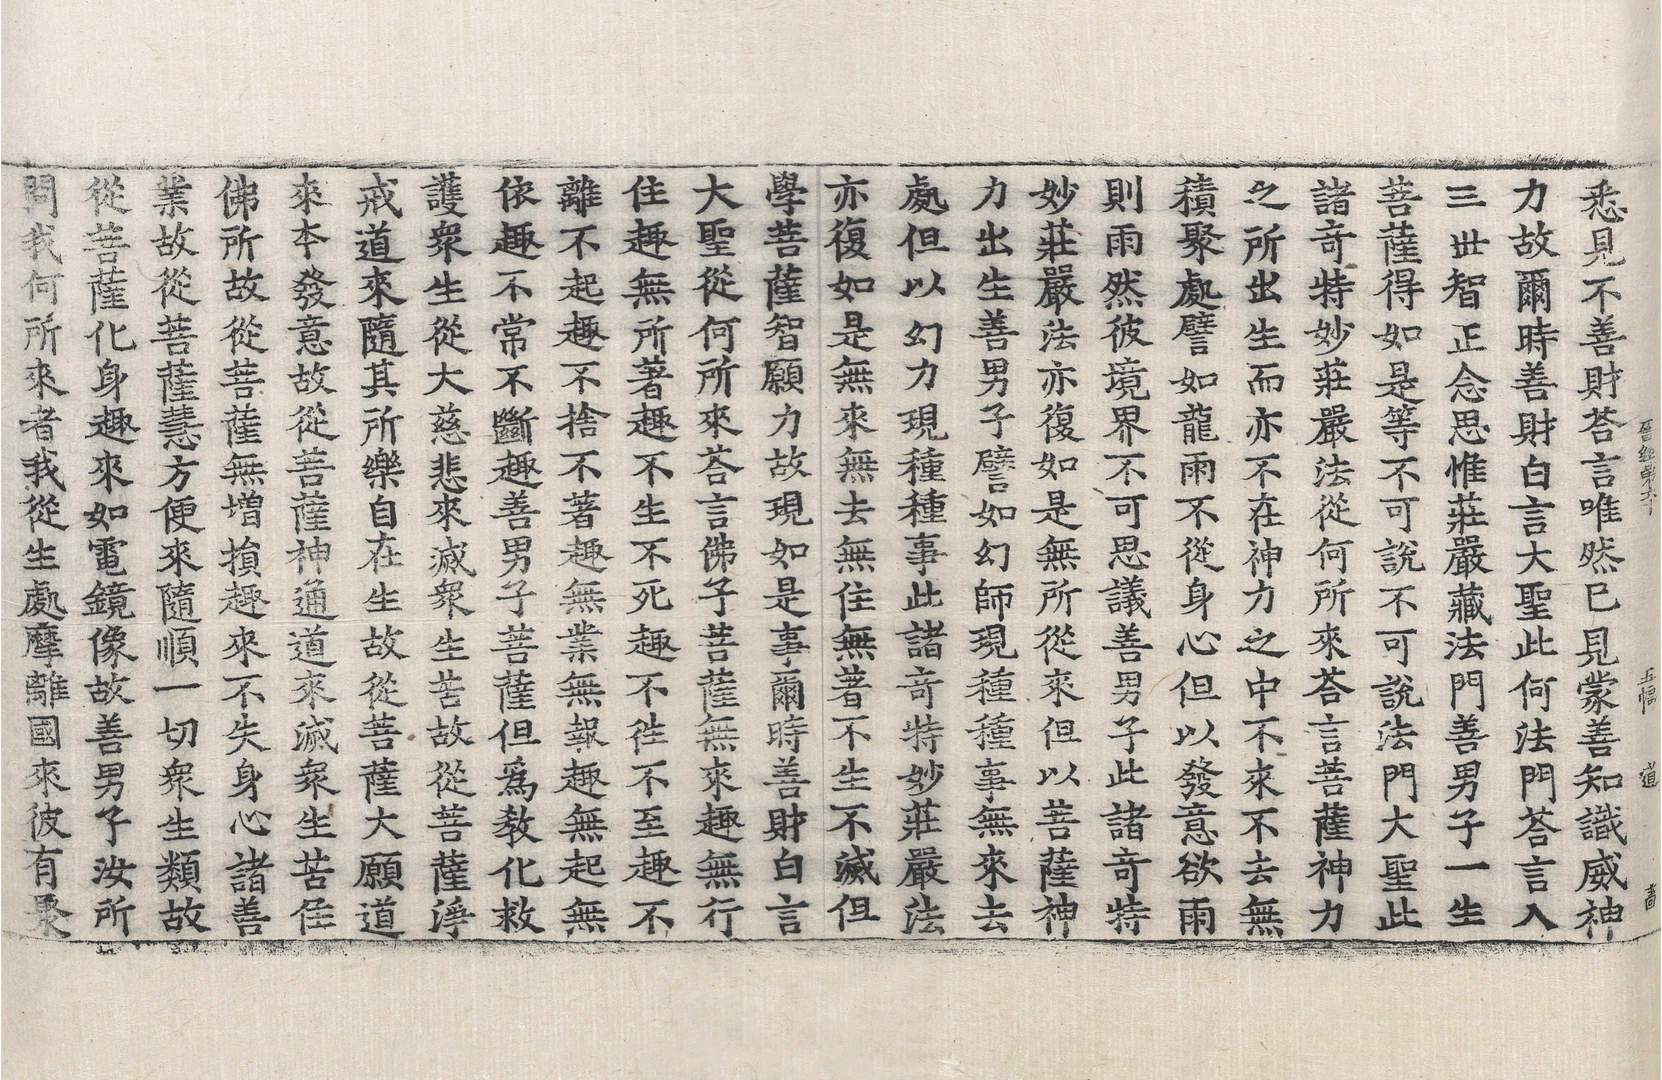 悉見不善財荅言唯然已見蒙善知識威神
力故爾時善財白言大聖此何法門荅言入
三世智正念思惟莊嚴藏法門善男子一生
菩薩得如是等不可說不可說法門大聖此
諸奇特妙莊嚴法從何所來荅言菩薩神力
之所出生而亦不在神力之中不來不去無
積聚處譬如龍雨不從身心但以發意欲雨
則雨然彼境界不可思議善男子此諸奇特
妙莊嚴法亦復如是無所從來但以菩薩神
力出生善男子譬如幻師現種種事無來去
處但以幻力現種種事此諸奇特妙莊嚴法
亦復如是無來無去無住無著不生不滅但
學菩薩智願力故現如是事爾時善財白言
大聖從何所來荅言佛子菩薩無來趣無行
住趣無所著趣不生不死趣不徃不至趣不
離不起趣不捨不著趣無業無報趣無起無
依趣不常不斷趣善男子菩薩但爲教化救
護衆生從大慈悲來滅衆生苦故從菩薩淨
戒道來隨其所樂自在生故從菩薩大願道
來本發意故從菩薩神通道來滅衆生苦住
佛所故從菩薩無增損趣來不失身心諸善
業故從菩薩慧方便來隨順一切衆生類故
從菩薩化身趣來如電鏡像故善男子汝所
問我何所來者我從生處摩離國來彼有聚
晉經第六十 五幅 道 畵